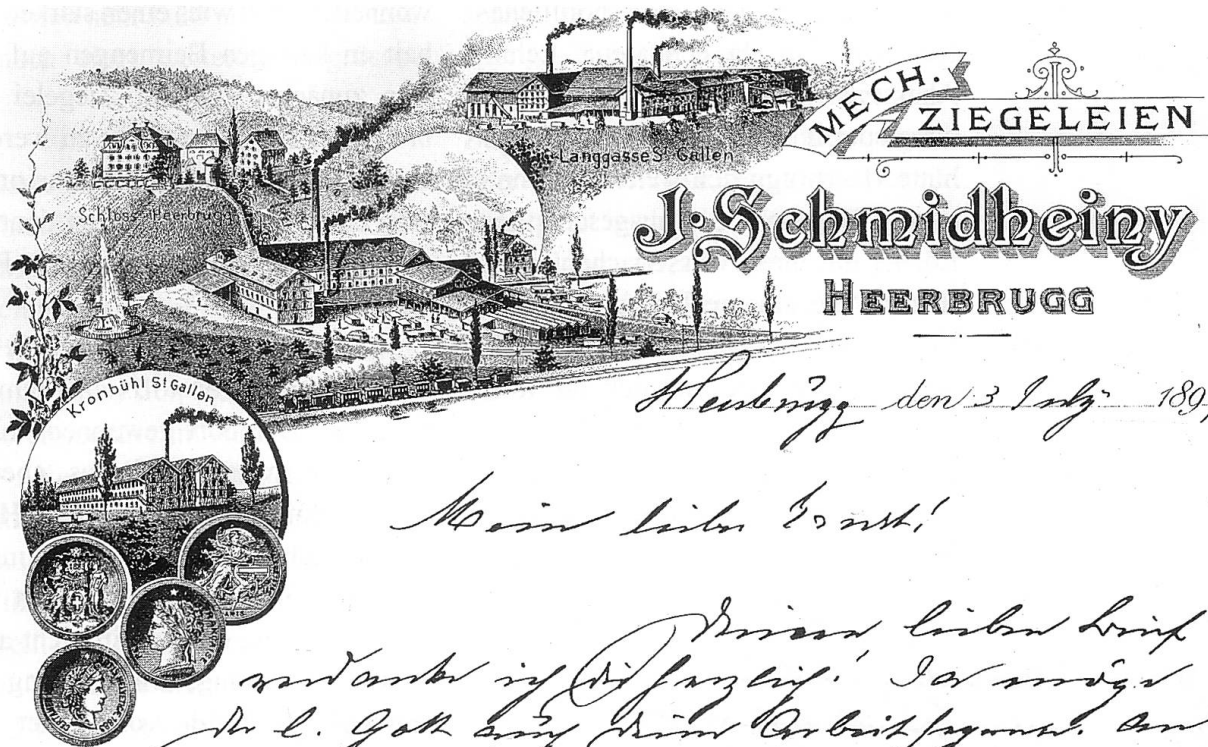 MECH.
ZIEGELEIEN
J. Schmidheiny
HEERBRUGG
Langgasse St Gallen
Schloss Heerbrugg
Kronbühl St Gallen
Heerbrugg den 3 July 189
Mein lieber Ernst!
Deinen lieben Brief
verdanke ich Dir herzlich! Ja möge
der l. Gott auch Deine Arbeit segnen. An